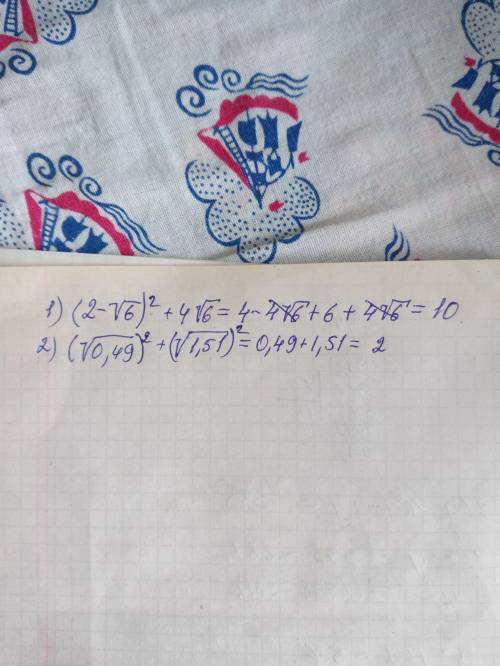 1) (2-√6)² + 4√6 = 4 - 4√6 + 6 + 4√6 = 10.
2) (√0,49)² + (√1,51)² = 0,49 + 1,51 = 2